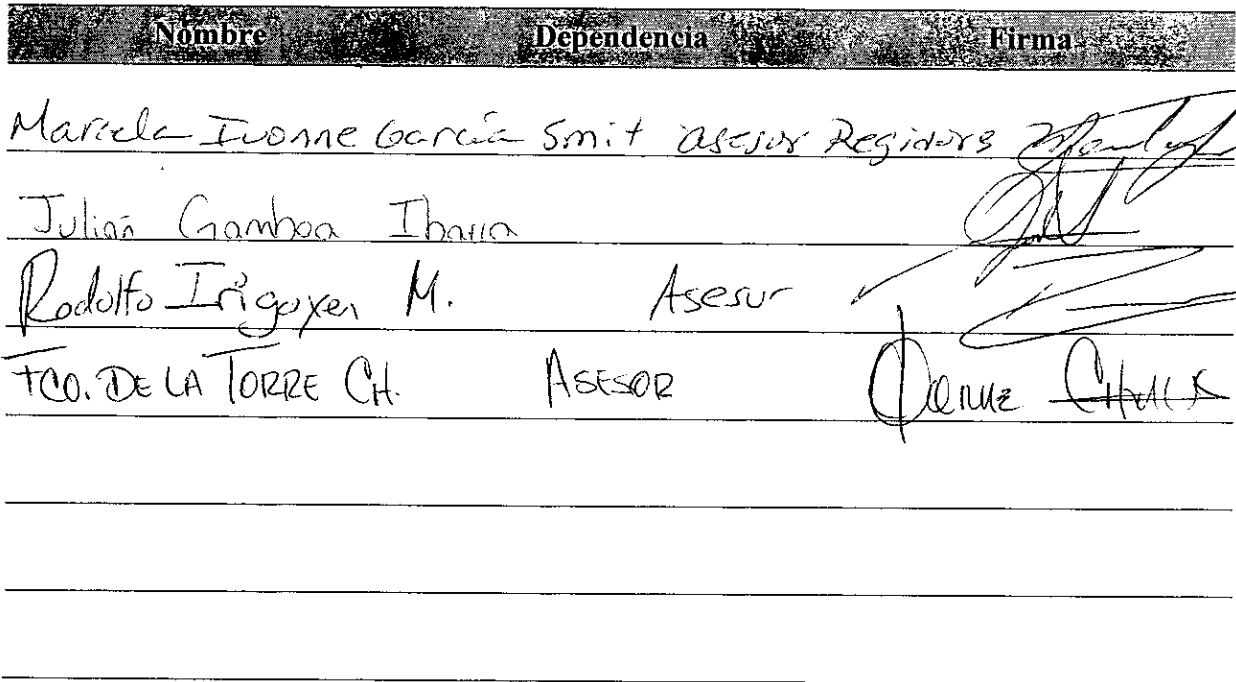 Nombre Dependencia Firma
Marcela Ivonne García Smit asesor Regidors
Julián Gamboa Ibarra
Rodolfo Irigoyen M. Asesor
FCO. DE LA TORRE CH. ASESOR